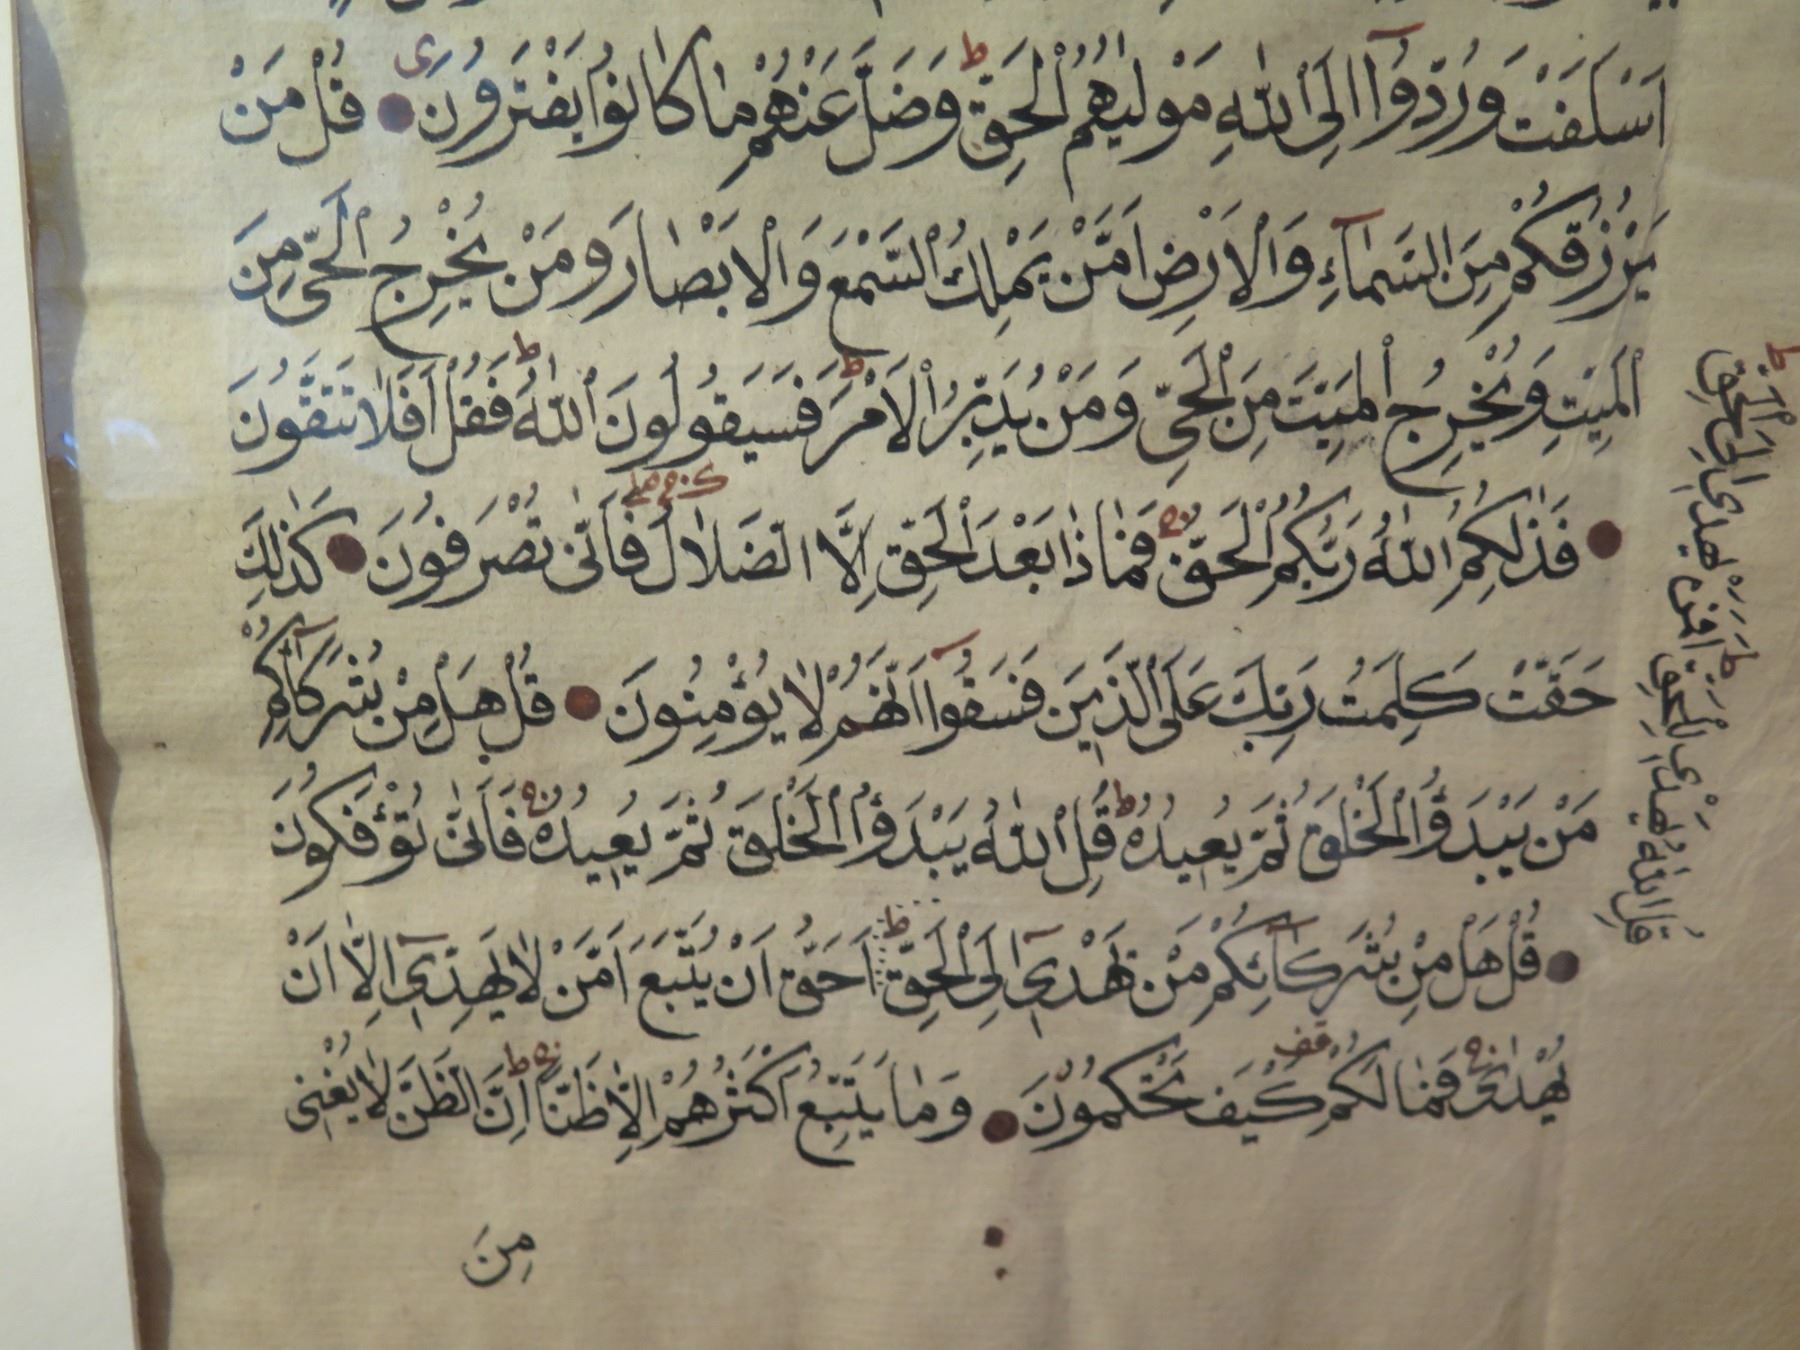 اَسْلَفَتْ وَرُدُّوٓا اِلَى اللّٰهِ مَوْلٰيهُمُ الْحَقِّ ط وَضَلَّ عَنْهُمْ مٰا كٰانُوا يَفْتَرُونَ ى قُلْ مَنْ
يَرْزُقُكُمْ مِنَ السَّمٰٓاءِ وَالْاَرْضِ اَمَّنْ يَمْلِكُ السَّمْعَ وَالْاَبْصٰارَ وَمَنْ يُخْرِجُ الْحَىَّ مِنَ
الْمَيِّتِ وَيُخْرِجُ الْمَيِّتَ مِنَ الْحَىِّ وَمَنْ يُدَبِّرُ الْاَمْرَ ط فَسَيَقُولُونَ اللّٰهُ ط فَقُلْ اَفَلٰا تَتَّقُونَ
فَذٰلِكُمُ اللّٰهُ رَبُّكُمُ الْحَقُّ ج فَمٰاذٰا بَعْدَ الْحَقِّ اِلَّا الضَّلٰالُ فَاَنّٰى تُصْرَفُونَ كَذٰلِكَ
حَقَّتْ كَلِمَتُ رَبِّكَ عَلَى الَّذِينَ فَسَقُوٓا اَنَّهُمْ لٰا يُؤْمِنُونَ قُلْ هَلْ مِنْ شُرَكَٓائِكُمْ
مَنْ يَبْدَؤُا الْخَلْقَ ثُمَّ يُعِيدُهُ ط قُلِ اللّٰهُ يَبْدَؤُا الْخَلْقَ ثُمَّ يُعِيدُهُ فَاَنّٰى تُؤْفَكُونَ
قُلْ هَلْ مِنْ شُرَكَٓائِكُمْ مَنْ يَهْدِىٓ اِلَى الْحَقِّ ط اَحَقُّ اَنْ يُتَّبَعَ اَمَّنْ لٰا يَهِدِّىٓ اِلَّٓا اَنْ
يُهْدٰى ج فَمٰا لَكُمْ قف كَيْفَ تَحْكُمُونَ وَمٰا يَتَّبِعُ اَكْثَرُهُمْ اِلَّا ظَنًّا ط اِنَّ الظَّنَّ لٰا يُغْنِى
مِنَ
قُلِ اللّٰهُ يَهْدِى لِلْحَقِّ ط اَفَمَنْ يَهْدِىٓ اِلَى الْحَقِّ ط